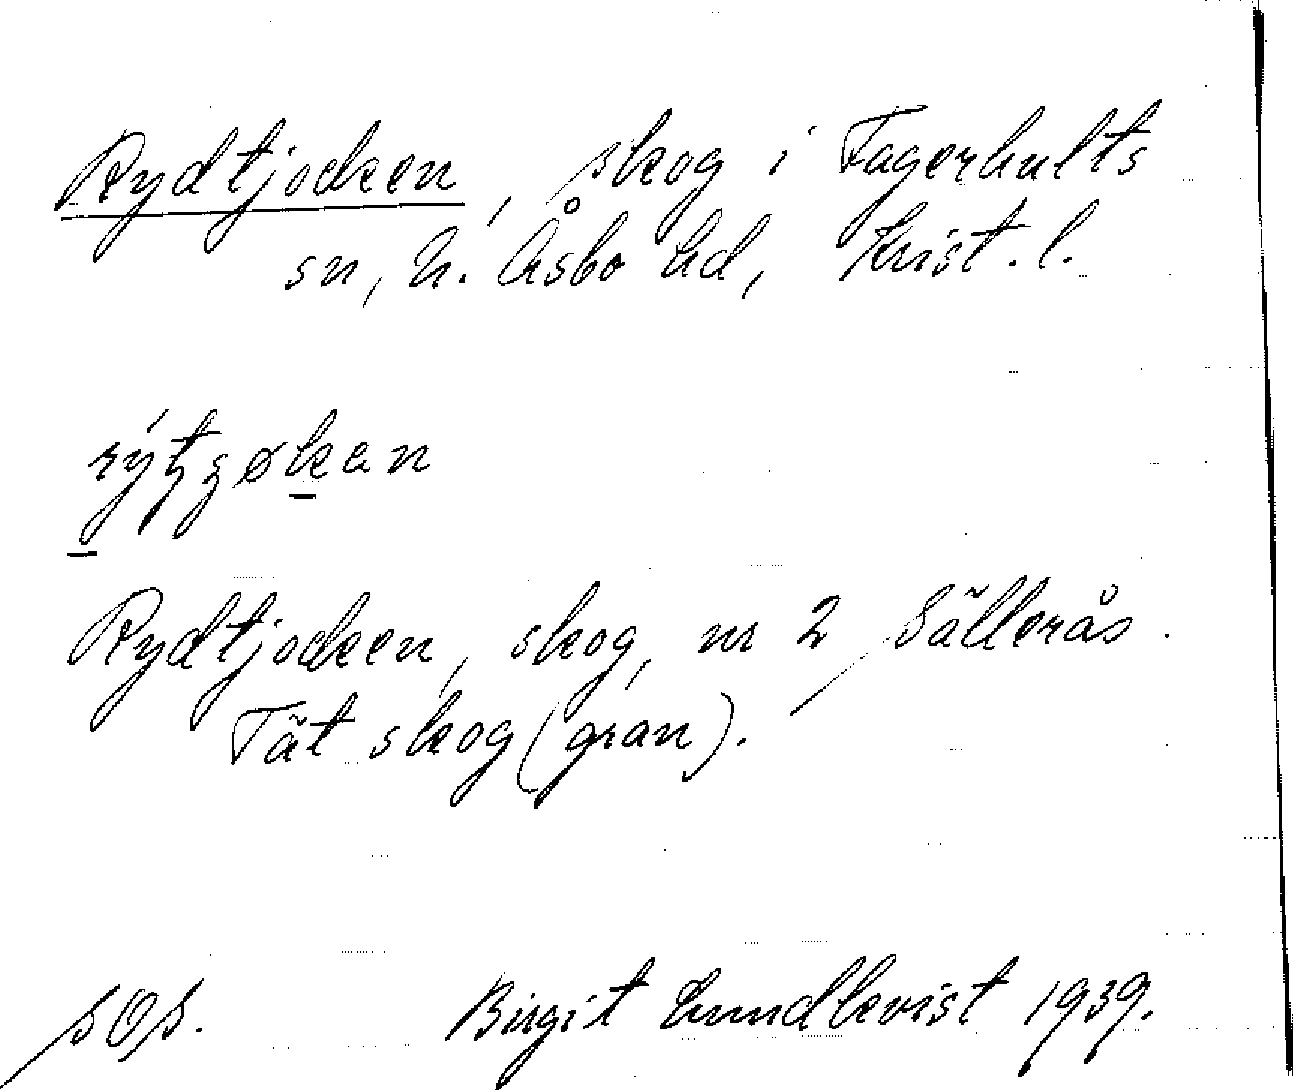 Rydtjocken, skog i Fagerhults
sn, N. Åsbo hd, Krist. l.
Rydtjocken, skog, nr 2 Sällerås.
Tät skog (gran).
Birgit Lundkvist 1939.